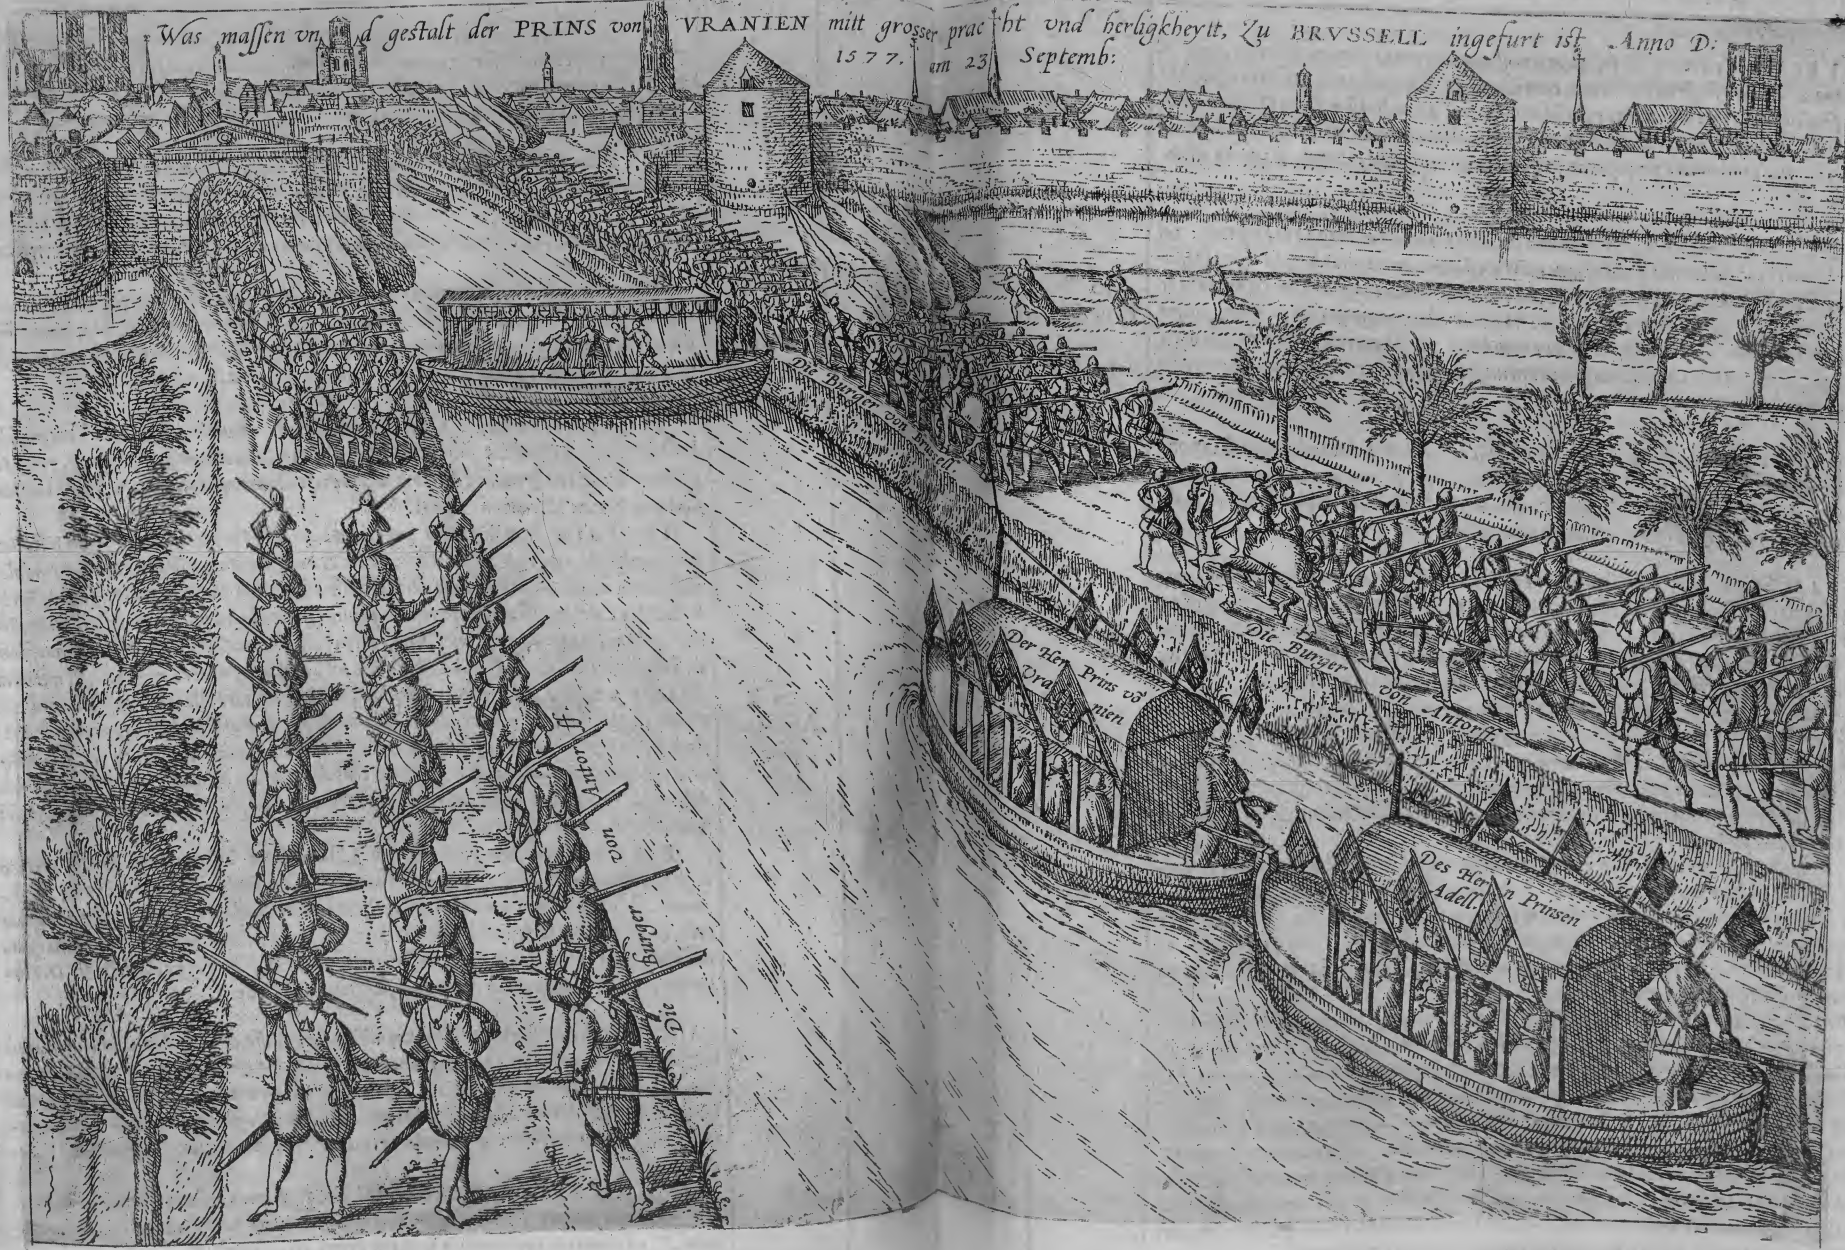 Was massen vnd gestalt der PRINS von VRANIEN mitt grosser pracht vnd herligkheytt, Zu BRVSSELL ingefurt ist Anno D:
1577. am 23 Septemb:
Die Burger von
Die Burger von Antorff
Der Her Prins võ
Vranien
Die Burger von Antorff
Des Herrn Prinsen
Adell